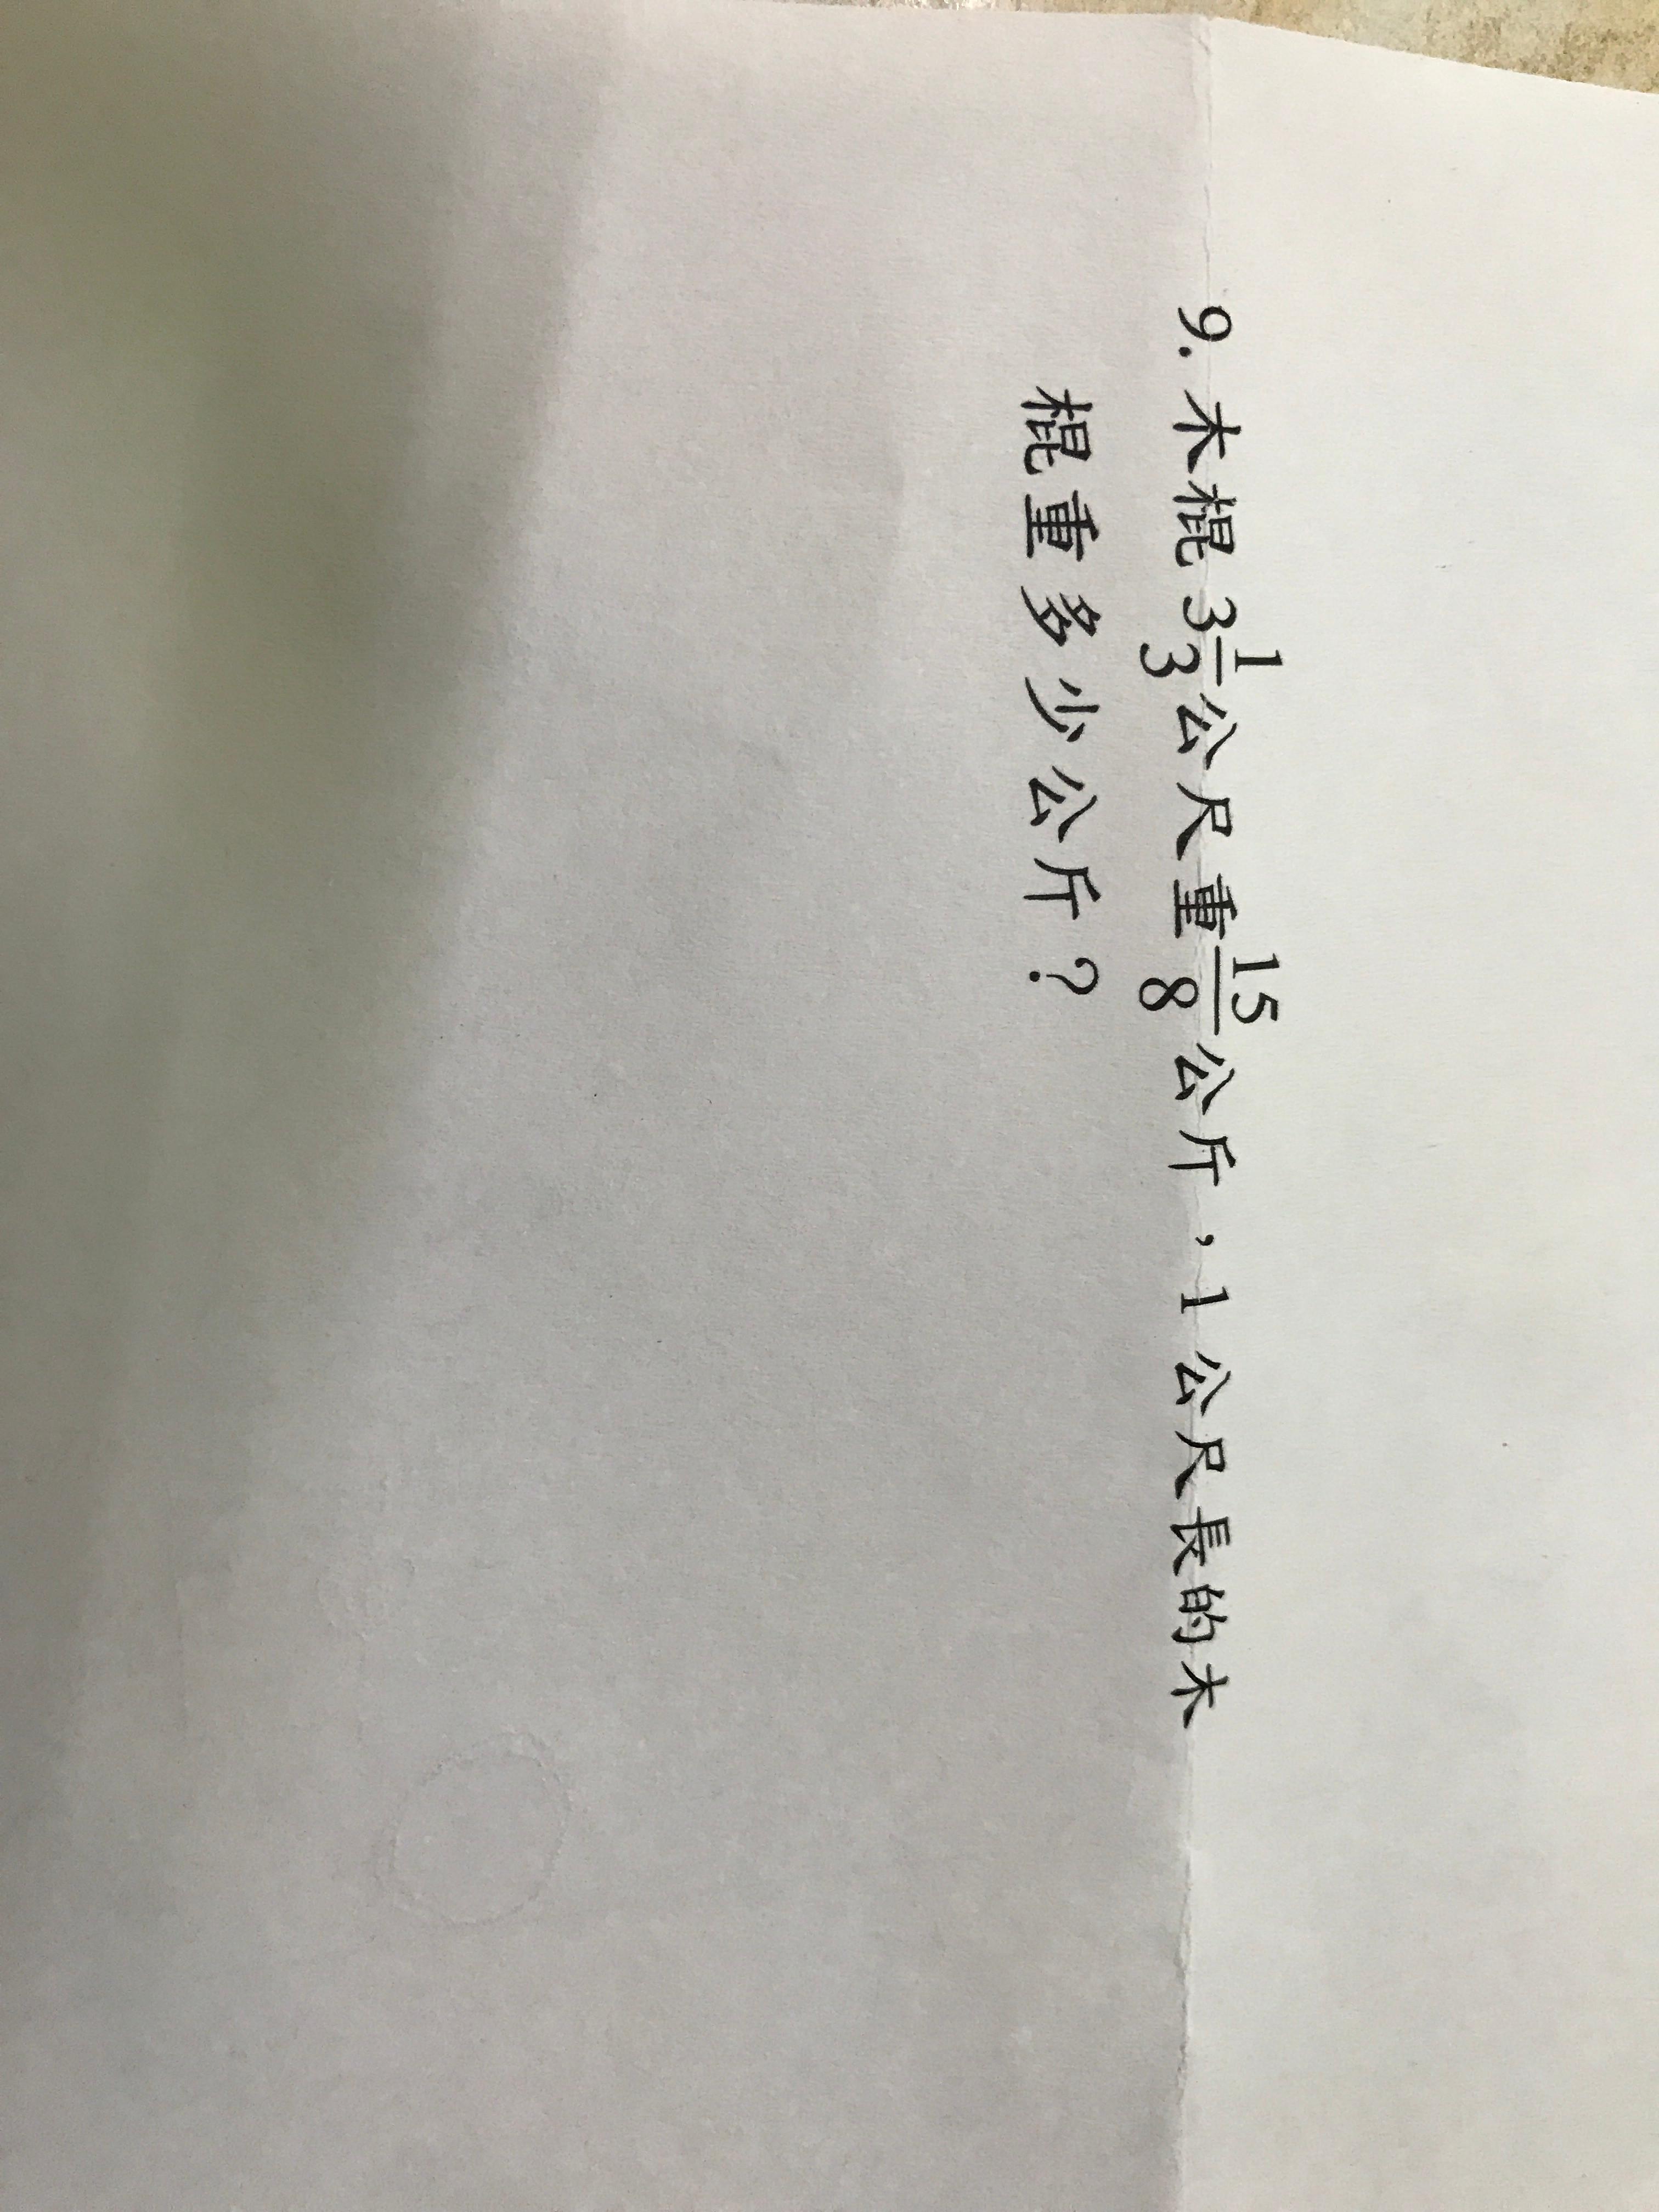 9. 木棍3 1/3公尺重15/8公斤，1公尺長的木
棍重多少公斤？